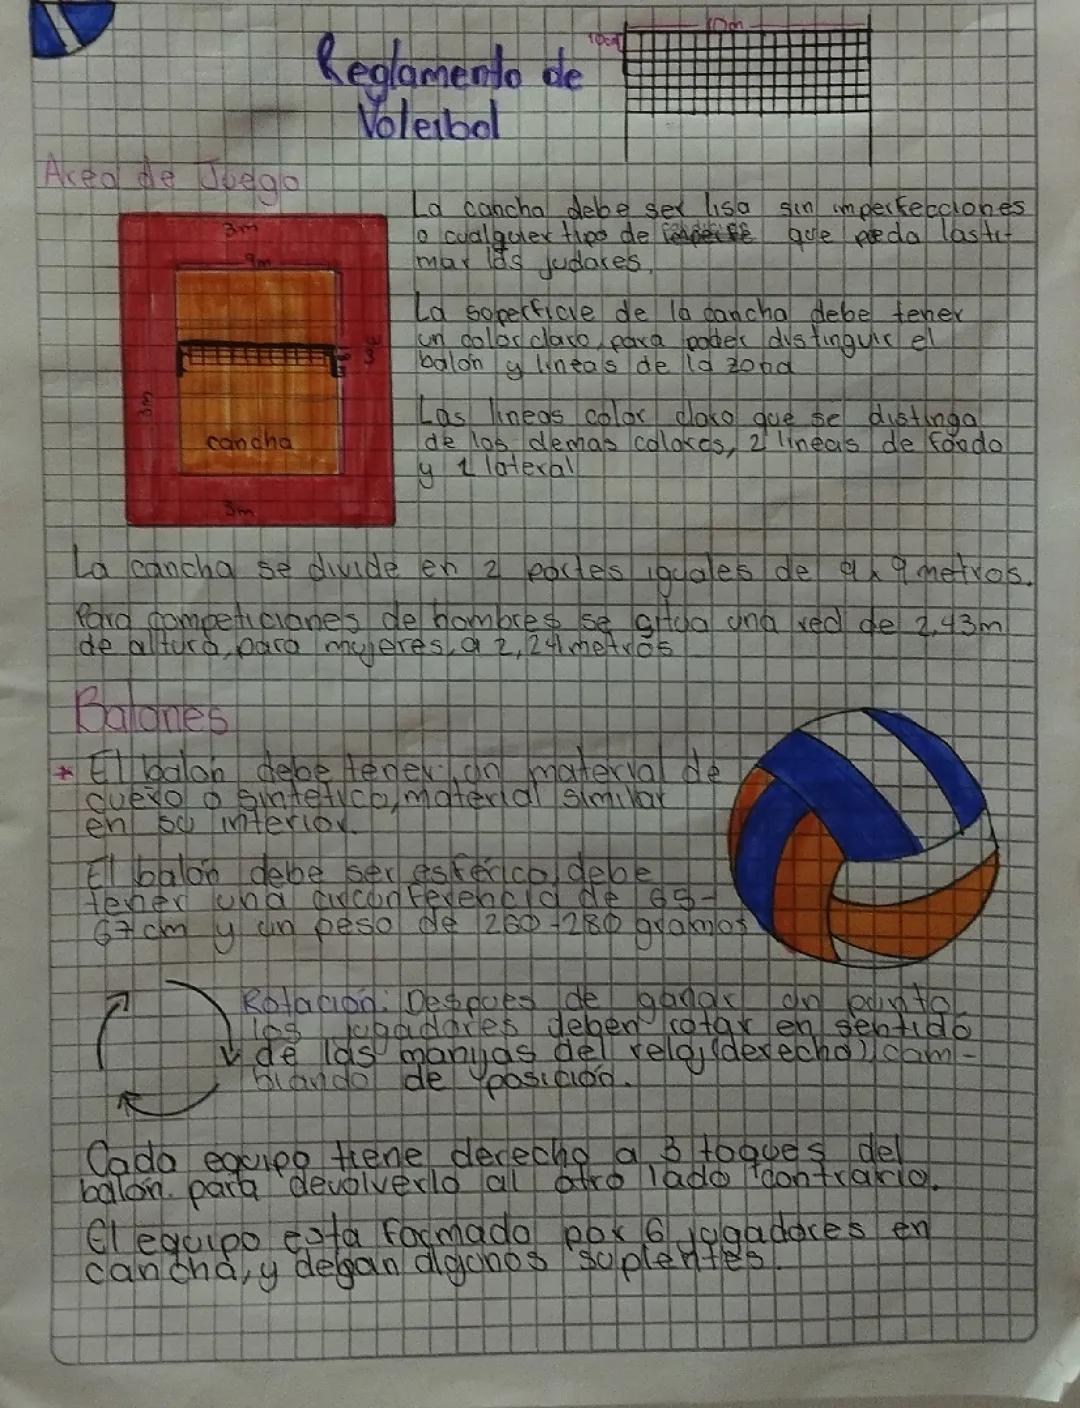 10m
Reglamento de
Voleibol
Area de Juego
3m
9m
3m
3m
cancha
3m
La cancha debe ser lisa sin imperfecciones
o cualquier tipo de que peda lasti-
mar los judares.
La soperficie de la cancha debe tener
un color claro, para poder distinguir el
balón y lineas de la zona
Las lineas color claro que se distinga
de los demas colores, 2 lineas de fondo
y 1 lateral
La cancha se divide en 2 partes iguales de 9 x 9 metros.
Para competiciones de hombres se sitúa una red de 2,43m
de altura, para mujeres, a 2,24 metros
Balones
* El balón debe tener un material de
cuero o sintetico, material similar
en su interior.
El balón debe ser esférico, debe
tener una circonferencia de 65-
67cm y un peso de 260-280 gramos
Rotación: Despues de ganar un punto
los jugadores deben rotar en sentido
de las manyas del reloj (derecha), cam-
biando de posición.
Cada equipo tiene derecho a 3 toques del
balón para devolverlo al otro lado contrario.
El equipo esta formado por 6 jugadores en
cancha, y degan algunos suplentes.